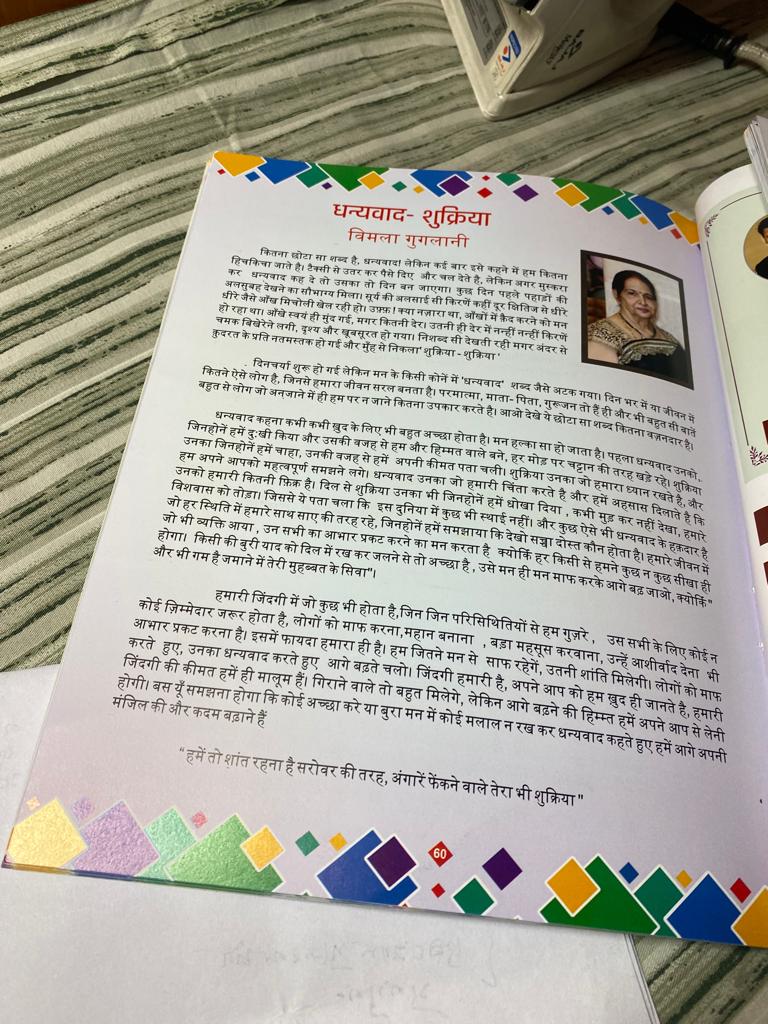 धन्यवाद- शुक्रिया
विमला गुगलानी
कितना छोटा सा शब्द है, धन्यवाद! लेकिन कई बार इसे कहने में हम कितना
हिचकिचा जाते है। टैक्सी से उतर कर पैसे दिए और चल देते है, लेकिन अगर मुस्करा
कर धन्यवाद कह दे तो उसका तो दिन बन जाएगा। कुछ दिन पहले पहाड़ों की
अलसुबह देखने का सौभाग्य मिला। सूर्य की अलसाई सी किरणें कहीं दूर क्षितिज से धीरे
धीरे जैसे आँख मिचोली खेल रही हो। उफ़्फ़! क्या नज़ारा था, आँखों में क़ैद करने को मन
हो रहा था। आँखे स्वयं ही मुंद गई, मगर कितनी देर। उतनी ही देर में नन्हीं नन्हीं किरणें
चमक बिखेरेने लगी, दृश्य और खूबसूरत हो गया। निशब्द सी देखती रही मगर अंदर से
कुदरत के प्रति नतमस्तक हो गई और मुँह से निकला' शुक्रिया - शुक्रिया '
दिनचर्या शुरू हो गई लेकिन मन के किसी कोनें में 'धन्यवाद' शब्द जैसे अटक गया। दिन भर में या जीवन में
कितने ऐसे लोग है, जिनसे हमारा जीवन सरल बनता है। परमात्मा, माता- पिता, गुरूजन तो हैं ही और भी बहुत सी बातें
बहुत से लोग जो अनजाने में ही हम पर न जाने कितना उपकार करते है। आओ देखे ये छोटा सा शब्द कितना वज़नदार है।
धन्यवाद कहना कभी कभी ख़ुद के लिए भी बहुत अच्छा होता है। मन हल्का सा हो जाता है। पहला धन्यवाद उनको,
जिनहोनें हमें दु:खी किया और उसकी वजह से हम और हिम्मत वाले बने, हर मोड़ पर चट्टान की तरह खड़े रहे। शुक्रिया
उनका जिनहोनें हमें चाहा, उनकी वजह से हमें अपनी कीमत पता चली। शुक्रिया उनका जो हमारा ध्यान रखते है, और
हम अपने आपको महत्वपूर्ण समझने लगे। धन्यवाद उनका जो हमारी चिंता करते है और हमें अहसास दिलाते है कि
उनको हमारी कितनी फ़िक्र है। दिल से शुक्रिया उनका भी जिनहोनें हमें धोखा दिया , कभी मुड़ कर नहीं देखा, हमारे
विशवास को तोड़ा। जिससे ये पता चला कि इस दुनिया में कुछ भी स्थाई नहीं। और कुछ ऐसे भी धन्यवाद के हक़दार है
जो हर स्थिति में हमारे साथ साए की तरह रहे, जिनहोनें हमें समझाया कि देखो सच्चा दोस्त कौन होता है। हमारे जीवन में
जो भी व्यक्ति आया , उन सभी का आभार प्रकट करने का मन करता है क्योकिं हर किसी से हमने कुछ न कुछ सीखा ही
होगा। किसी की बुरी याद को दिल में रख कर जलने से तो अच्छा है , उसे मन ही मन माफ करके आगे बढ़ जाओ, क्योकिं"
और भी गम है जमाने में तेरी मुहब्बत के सिवा"।
हमारी जिंदगी में जो कुछ भी होता है,जिन जिन परिसिथितियों से हम गुज़रे , उस सभी के लिए कोई न
कोई ज़िम्मेदार जरूर होता है, लोगों को माफ करना,महान बनाना , बड़ा महसूस करवाना, उन्हें आशीर्वाद देना भी
आभार प्रकट करना है। इसमें फायदा हमारा ही है। हम जितने मन से साफ रहेगें, उतनी शांति मिलेगी। लोगों को माफ
करते हुए, उनका धन्यवाद करते हुए आगे बढ़ते चलो। जिंदगी हमारी है, अपने आप को हम ख़ुद ही जानते है, हमारी
जिंदगी की कीमत हमें ही मालूम हैं। गिराने वाले तो बहुत मिलेगे, लेकिन आगे बढ़ने की हिम्म्त हमें अपने आप से लेनी
होगी। बस यूँ समझना होगा कि कोई अच्छा करे या बुरा मन में कोई मलाल न रख कर धन्यवाद कहते हुए हमें आगे अपनी
मंजिल की और कदम बढ़ाने हैं
"हमें तो शांत रहना है सरोवर की तरह, अंगारें फेंकने वाले तेरा भी शुक्रिया"
60